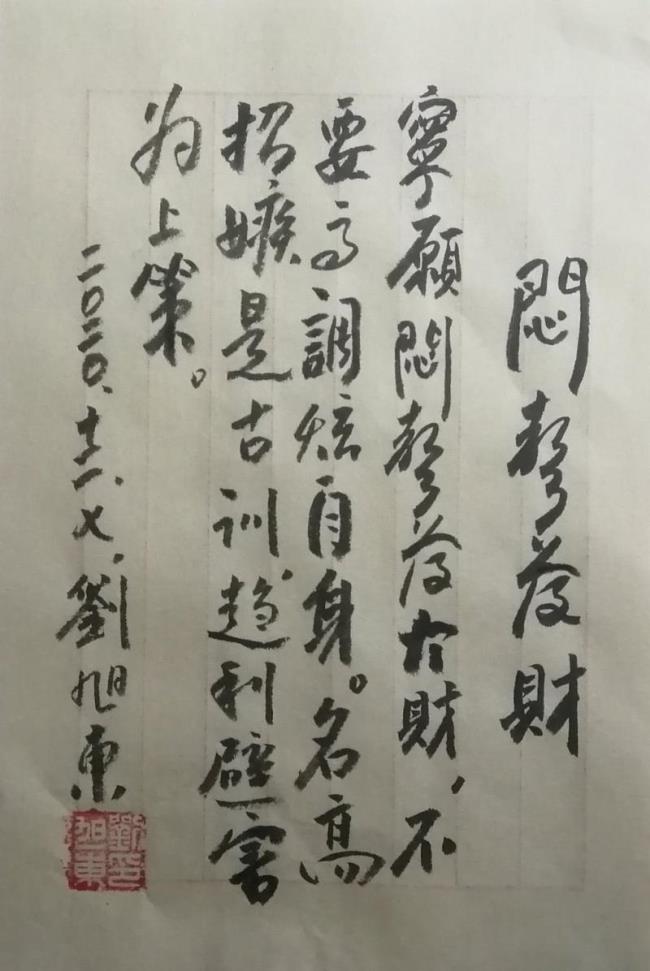 悶聲發財
寧願悶聲發大財，不
要高調炫自身。名高
招嫉是古訓，趨利避害
為上策。
二〇二〇、十二、七，劉旭東
劉旭東印